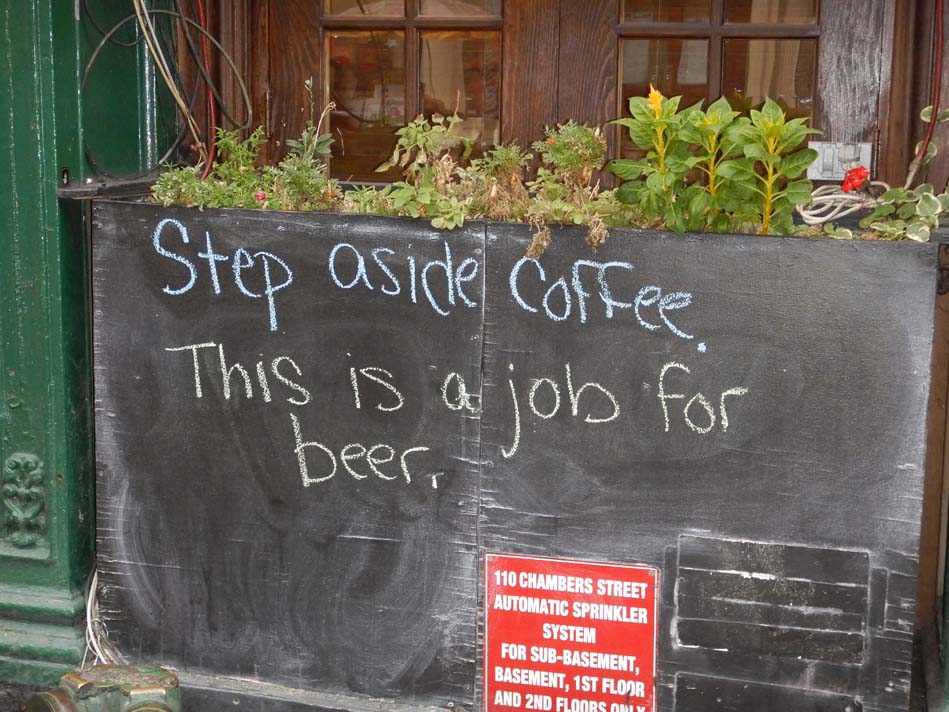 Step aside Coffee.
This is a job for
beer.
110 CHAMBERS STREET
AUTOMATIC SPRINKLER
SYSTEM
FOR SUB-BASEMENT,
BASEMENT, 1ST FLOOR
AND 2ND FLOORS ONLY